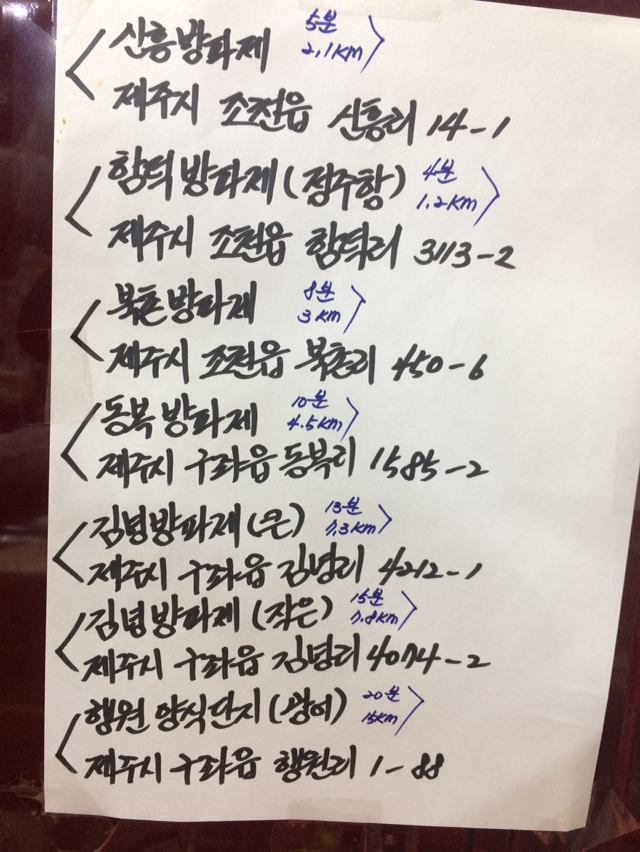 신흥방파제 5분
2.1KM
제주시 조천읍 신흥리 14-1
함덕방파제(정주항) 4분
1.2KM
제주시 조천읍 함덕리 3113-2
북촌방파제 8분
3KM
제주시 조천읍 북촌리 450-6
동복방파제 10분
4.5KM
제주시 구좌읍 동복리 1585-2
김녕방파제(큰) 13분
7.3KM
제주시 구좌읍 김녕리 4212-1
김녕방파제(작은) 15분
7.8KM
제주시 구좌읍 김녕리 4074-2
행원양식단지(광어) 20분
15KM
제주시 구좌읍 행원리 1-88